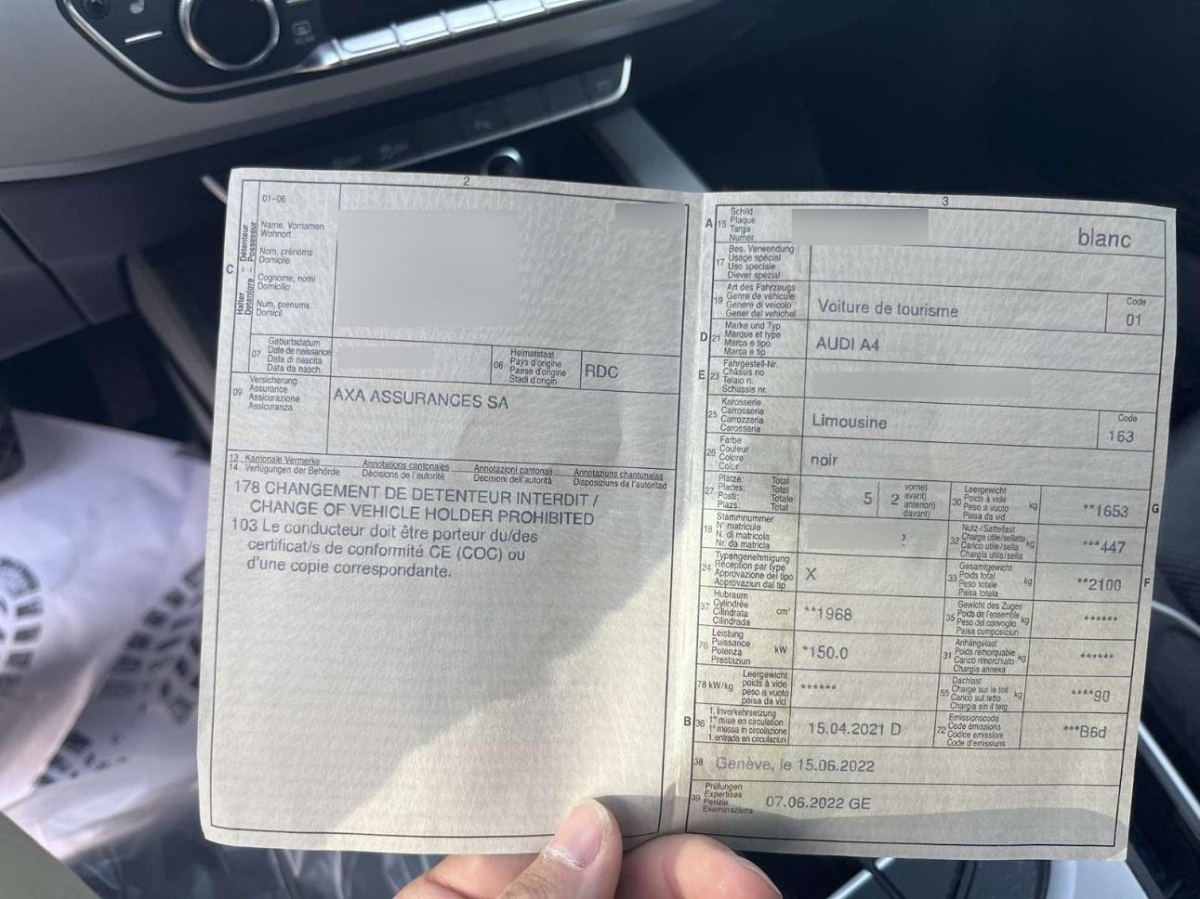 2
01-06
Halter
Detentore
Détenteur
Possessur
C
Name, Vornamen
Wohnort
Nom, prénoms
Domicile
Cognome, nomi
Domicilio
Num, prenums
Domicil
07
Geburtsdatum
Date de naissance
Data di nascita
Data da nasch.
08
Heimatstaat
Pays d'origine
Paese d'origine
Stadi d'origin
RDC
09
Versicherung
Assurance
Assicurazione
Assicuranza
AXA ASSURANCES SA
13 Kantonale Vermerke Annotations cantonales Annotazioni cantonali Annotaziuns chantunalas
14 Verfügungen der Behörde Décisions de l'autorité Decisioni dell'autorità Disposiziuns da l'autoritad
178 CHANGEMENT DE DETENTEUR INTERDIT /
CHANGE OF VEHICLE HOLDER PROHIBITED
103 Le conducteur doit être porteur du/des
certificat/s de conformité CE (COC) ou
d'une copie correspondante.
3
A 15
Schild
Plaque
Targa
Numer
blanc
17
Bes. Verwendung
Usage spécial
Uso speciale
Diever spezial
19
Art des Fahrzeugs
Genre de véhicule
Genere di veicolo
Gener dal vehichel
Voiture de tourisme
Code
01
D 21
Marke und Typ
Marque et type
Marca e tipo
Marca e tip
AUDI A4
E 23
Fahrgestell-Nr.
Châssis no
Telaio n.
Schassis nr.
25
Karosserie
Carrosserie
Carrozzeria
Carossaria
Limousine
Code
163
26
Farbe
Couleur
Colore
Color
noir
27
Plätze: Total
Places: Total
Posti: Totale
Plazs: Total
5
2
vorne)
avant)
anteriori)
davant)
30
Leergewicht
Poids à vide
Peso a vuoto
Paisa da vid
kg
**1653
G
18
Stammnummer
N° matricule
N. di matricola
Nr. da matricla
32
Nutz-/Sattellast
Charge utile/sellette
Carico utile/sella
Chargia utila/sella
kg
***447
24
Typengenehmigung
Réception par type
Approvazione del tipo
Approvaziun dal tip
X
33
Gesamtgewicht
Poids total
Peso totale
Paisa totala
kg
**2100
F
37
Hubraum
Cylindrée
Cilindrata
Cilindrada
cm³
**1968
35
Gewicht des Zuges
Poids de l'ensemble
Peso del convoglio
Paisa cumposiziun
kg
******
76
Leistung
Puissance
Potenza
Prestaziun
kW
*150.0
31
Anhängelast
Poids remorquable
Carico rimorchiato
Chargia annexa
kg
******
78 kW/kg
Leergewicht
poids à vide
peso a vuoto
paisa da vid
******
55
Dachlast
Charge sur le toit
Carico sul tetto
Chargia sin il tetg
kg
****90
B 36
1. Inverkehrsetzung
1re mise en circulation
1a messa in circolazione
1. entrada en circulaziun
15.04.2021 D
72
Emissionscode
Code émissions
Codice emissioni
Code d'emissiuns
***B6d
38
Genève, le 15.06.2022
39
Prüfungen
Expertises
Perizie
Examinaziuns
07.06.2022 GE